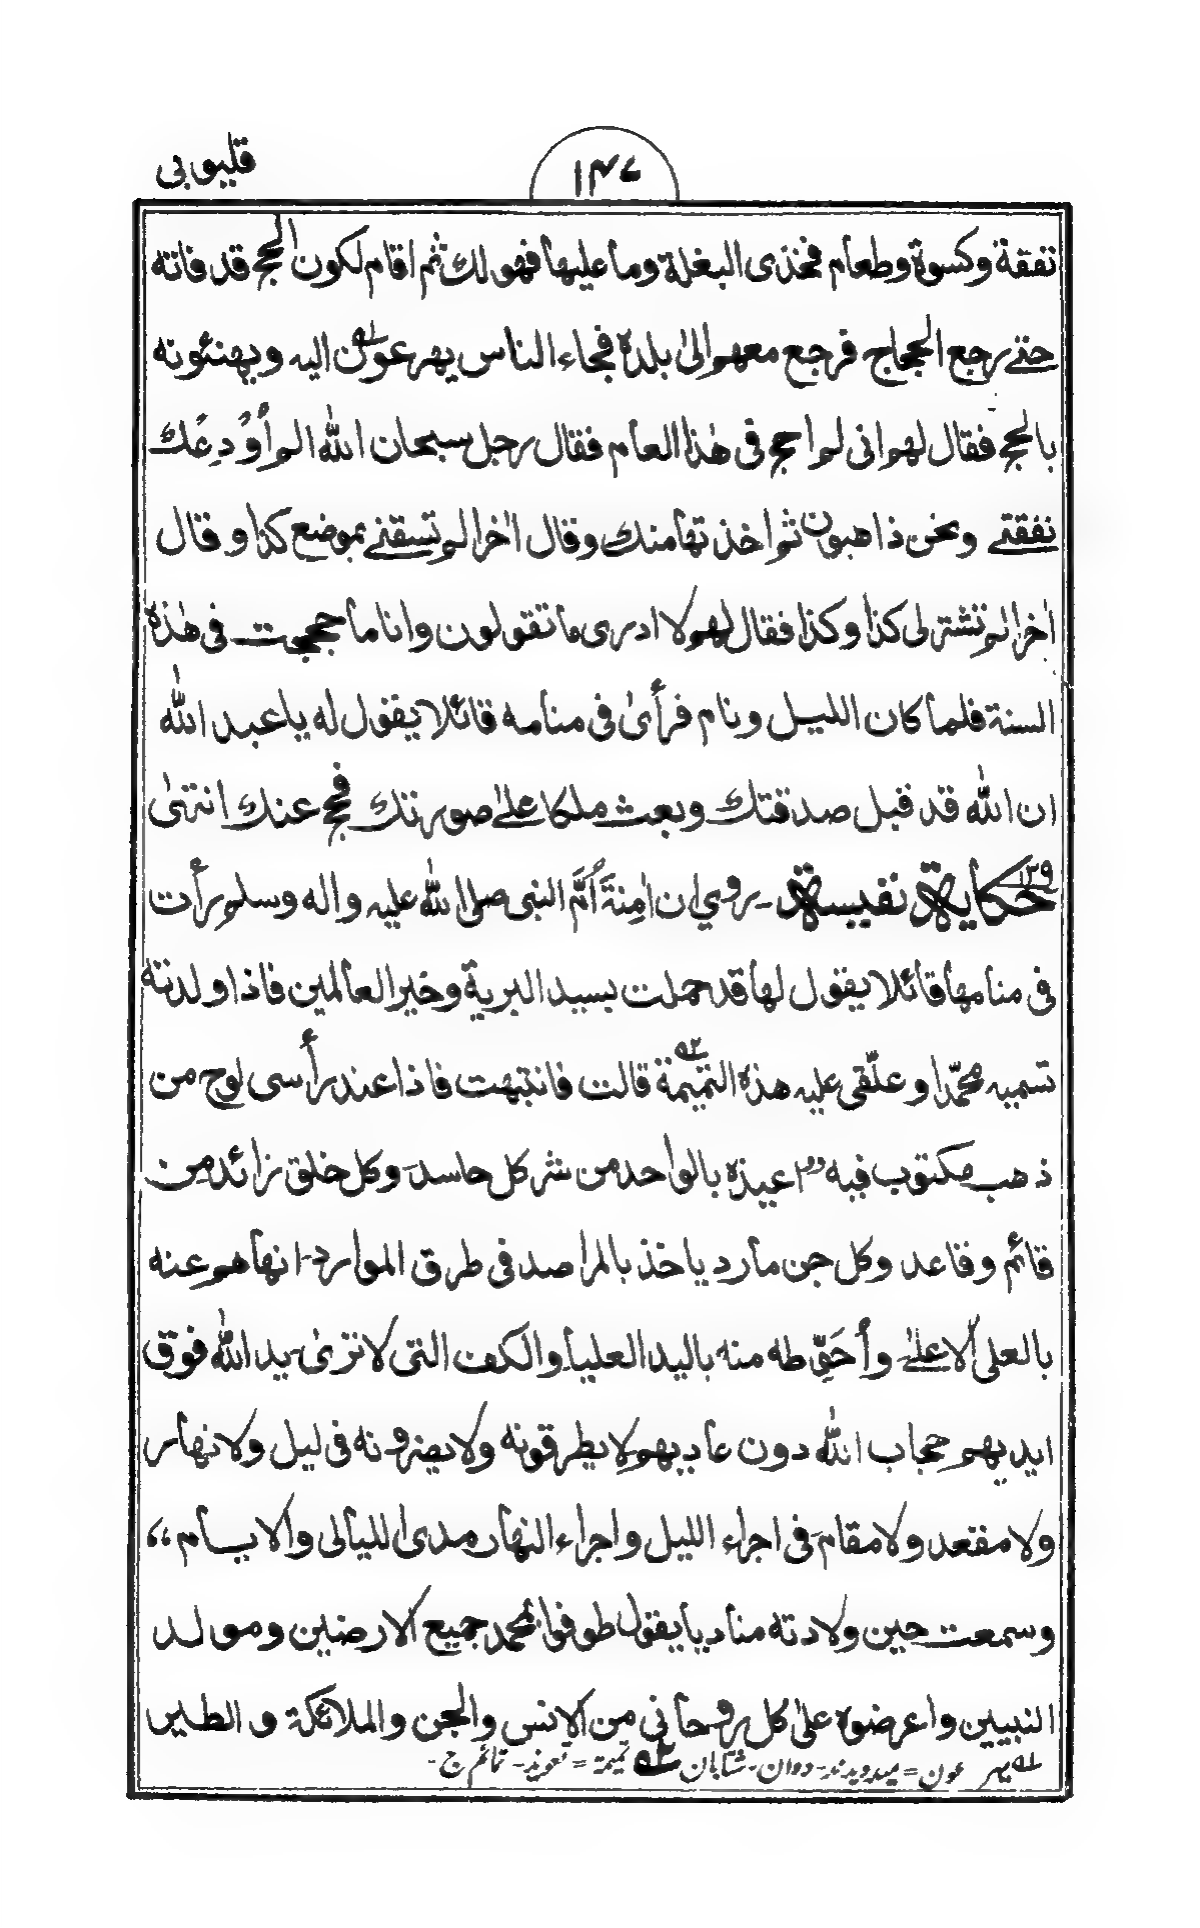 قليوبى
۱۴۷
نفقة وكسوة وطعام فخذى البغلة وما عليها فهو لك ثم اقام لكون الحج قد فاته
حتے رجع الحجاج فرجع معهم الىٰ بلده فجاء الناس يهرعون۵۱ اليه ويهنئونه
بالحج فقال لهم انى لم احج فى هٰذا العام فقال رجل سبحان الله الم أُوْدِعْك
نفقتے ونحن ذاهبون ثم اخذتها منك وقال اٰخر الم تسقنے بموضع كذا وقال
اٰخر الم تشتر لى كذا وكذا فقال لهم لا ادرى ما تقولون وانا ما حججت فى هٰذه
السنة فلما كان الليل ونام فرأىٰ فى منامه قائلا يقول له يا عبد الله
ان الله قد قبل صدقتك وبعث ملكا علےٰ صورتك فحج عنك انتهىٰ
حكاية۱۲۹ نفيسة - روي ان اٰمِنَةَ اُمَّ النبى صلى الله عليه واٰله وسلم رأت
فى منامها قائلا يقول لها قد حملت بسيد البرية وخير العالمين فاذا ولدته
تسميه محمّدا وعلّقى عليه هذه التميمة۵۲ قالت فانتبهت فاذا عند رأسى لوح من
ذهب مكتوب فيه "اعيذه بالواحد من شر كل حاسد - وكل خلق زائد من
قائم وقاعد وكل جن مارد ياخذ بالمراصد فى طرق الموارد - انهاهم عنه
بالعلى الاعلےٰ وأُحَوِّطه منه باليد العليا والكف التى لا ترىٰ - يد الله فوق
ايديهم حجاب الله دون عاديهم لا يطرقونه ولا يضرونه فى ليل ولا نهار
ولا مقعد ولا مقام فى اجراء الليل واجراء النهار مدى الليالى والايام"
وسمعت حين ولادته مناديا يقول طوفوا بمحمد جميع الارضين ومولد
النبيين واعرضوه علىٰ كل روحانى من الانس والجن والملائكة و الطير
۵۱ يهرعون = ميدويدند - دوان - شتابان ۵۲ تميمة = تعويذ - تمائم ج -